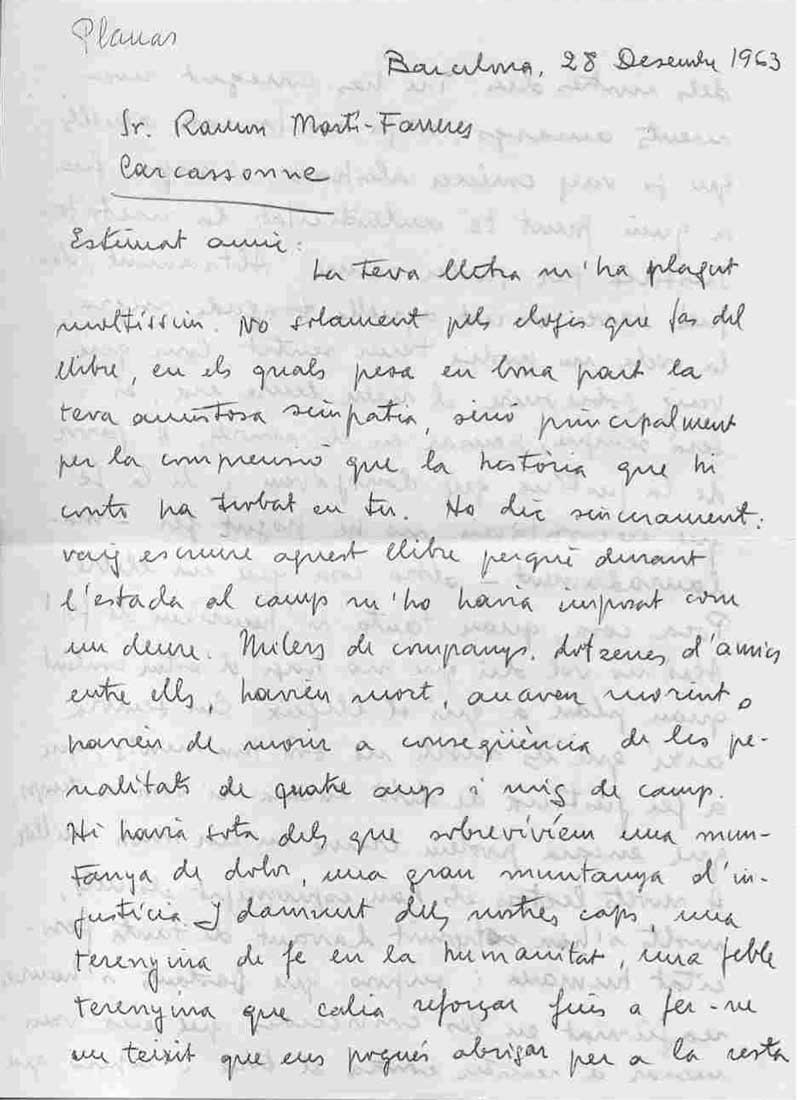 Planas
Barcelona, 28 Desembre 1963
Sr. Ramon Martí-Farreres
Carcassonne
Estimat amic:
La teva lletra m'ha plagut
moltíssim. No solament pels elogis que fas del
llibre, en els quals pesa en bona part la
teva amistosa simpatia, sinó principalment
per la comprensió que la història que hi
conto ha trobat en tu. Ho dic sincerament:
vaig escriure aquest llibre perquè durant
l'estada al camp m'ho havia imposat com
un deure. Milers de companys, dotzenes d'amics
entre ells, havien mort, anaven morint, o
havien de morir a conseqüència de les pe-
nalitats de quatre anys i mig de camp.
Hi havia sota dels que sobrevivíem una mun-
tanya de dolor, una gran muntanya d'in-
justícia. I damunt dels nostres caps, una
terenyina de fe en la humanitat, una feble
terenyina que calia reforçar fins a fer-ne
un teixit que ens pogués abrigar per a la resta